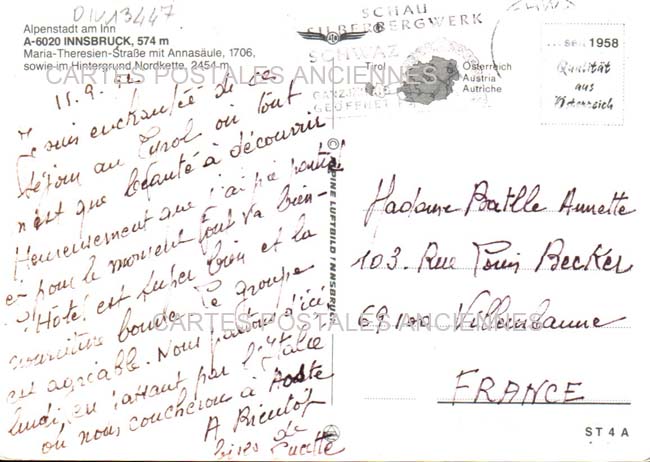 DIV13447
Alpenstadt am Inn
A-6020 INNSBRUCK, 574 m
Maria-Theresien-Straße mit Annasäule, 1706,
sowie im Hintergrund Nordkette, 2454 m
SCHAU
SILBERBERGWERK
SCHWAZ
Tirol
GEÖFFNET
Österreich
Austria
Autriche
seit 1958
Qualität
aus
Österreich
CARTES POSTALES ANCIENNES
11.9.
Je suis enchantée de ce
séjour au Tyrol où tout
n'est que beauté à découvrir
Heureusement que j'ai pu partir!
et pour le moment tout va bien -
L'Hôtel est super bien et la
nourriture bonne. Le groupe
est agréable. Nous partons d'ici
lundi, en passant par l'Italie
où nous coucherons à Aoste
A Bientôt
bises de
ALPINE LUFTBILD INNSBRUCK
Madame Batlle Annette
103. Rue Louis Becker
69100 Villeurbanne
CARTES POSTALES ANCIENNES
FRANCE
ST 4 A